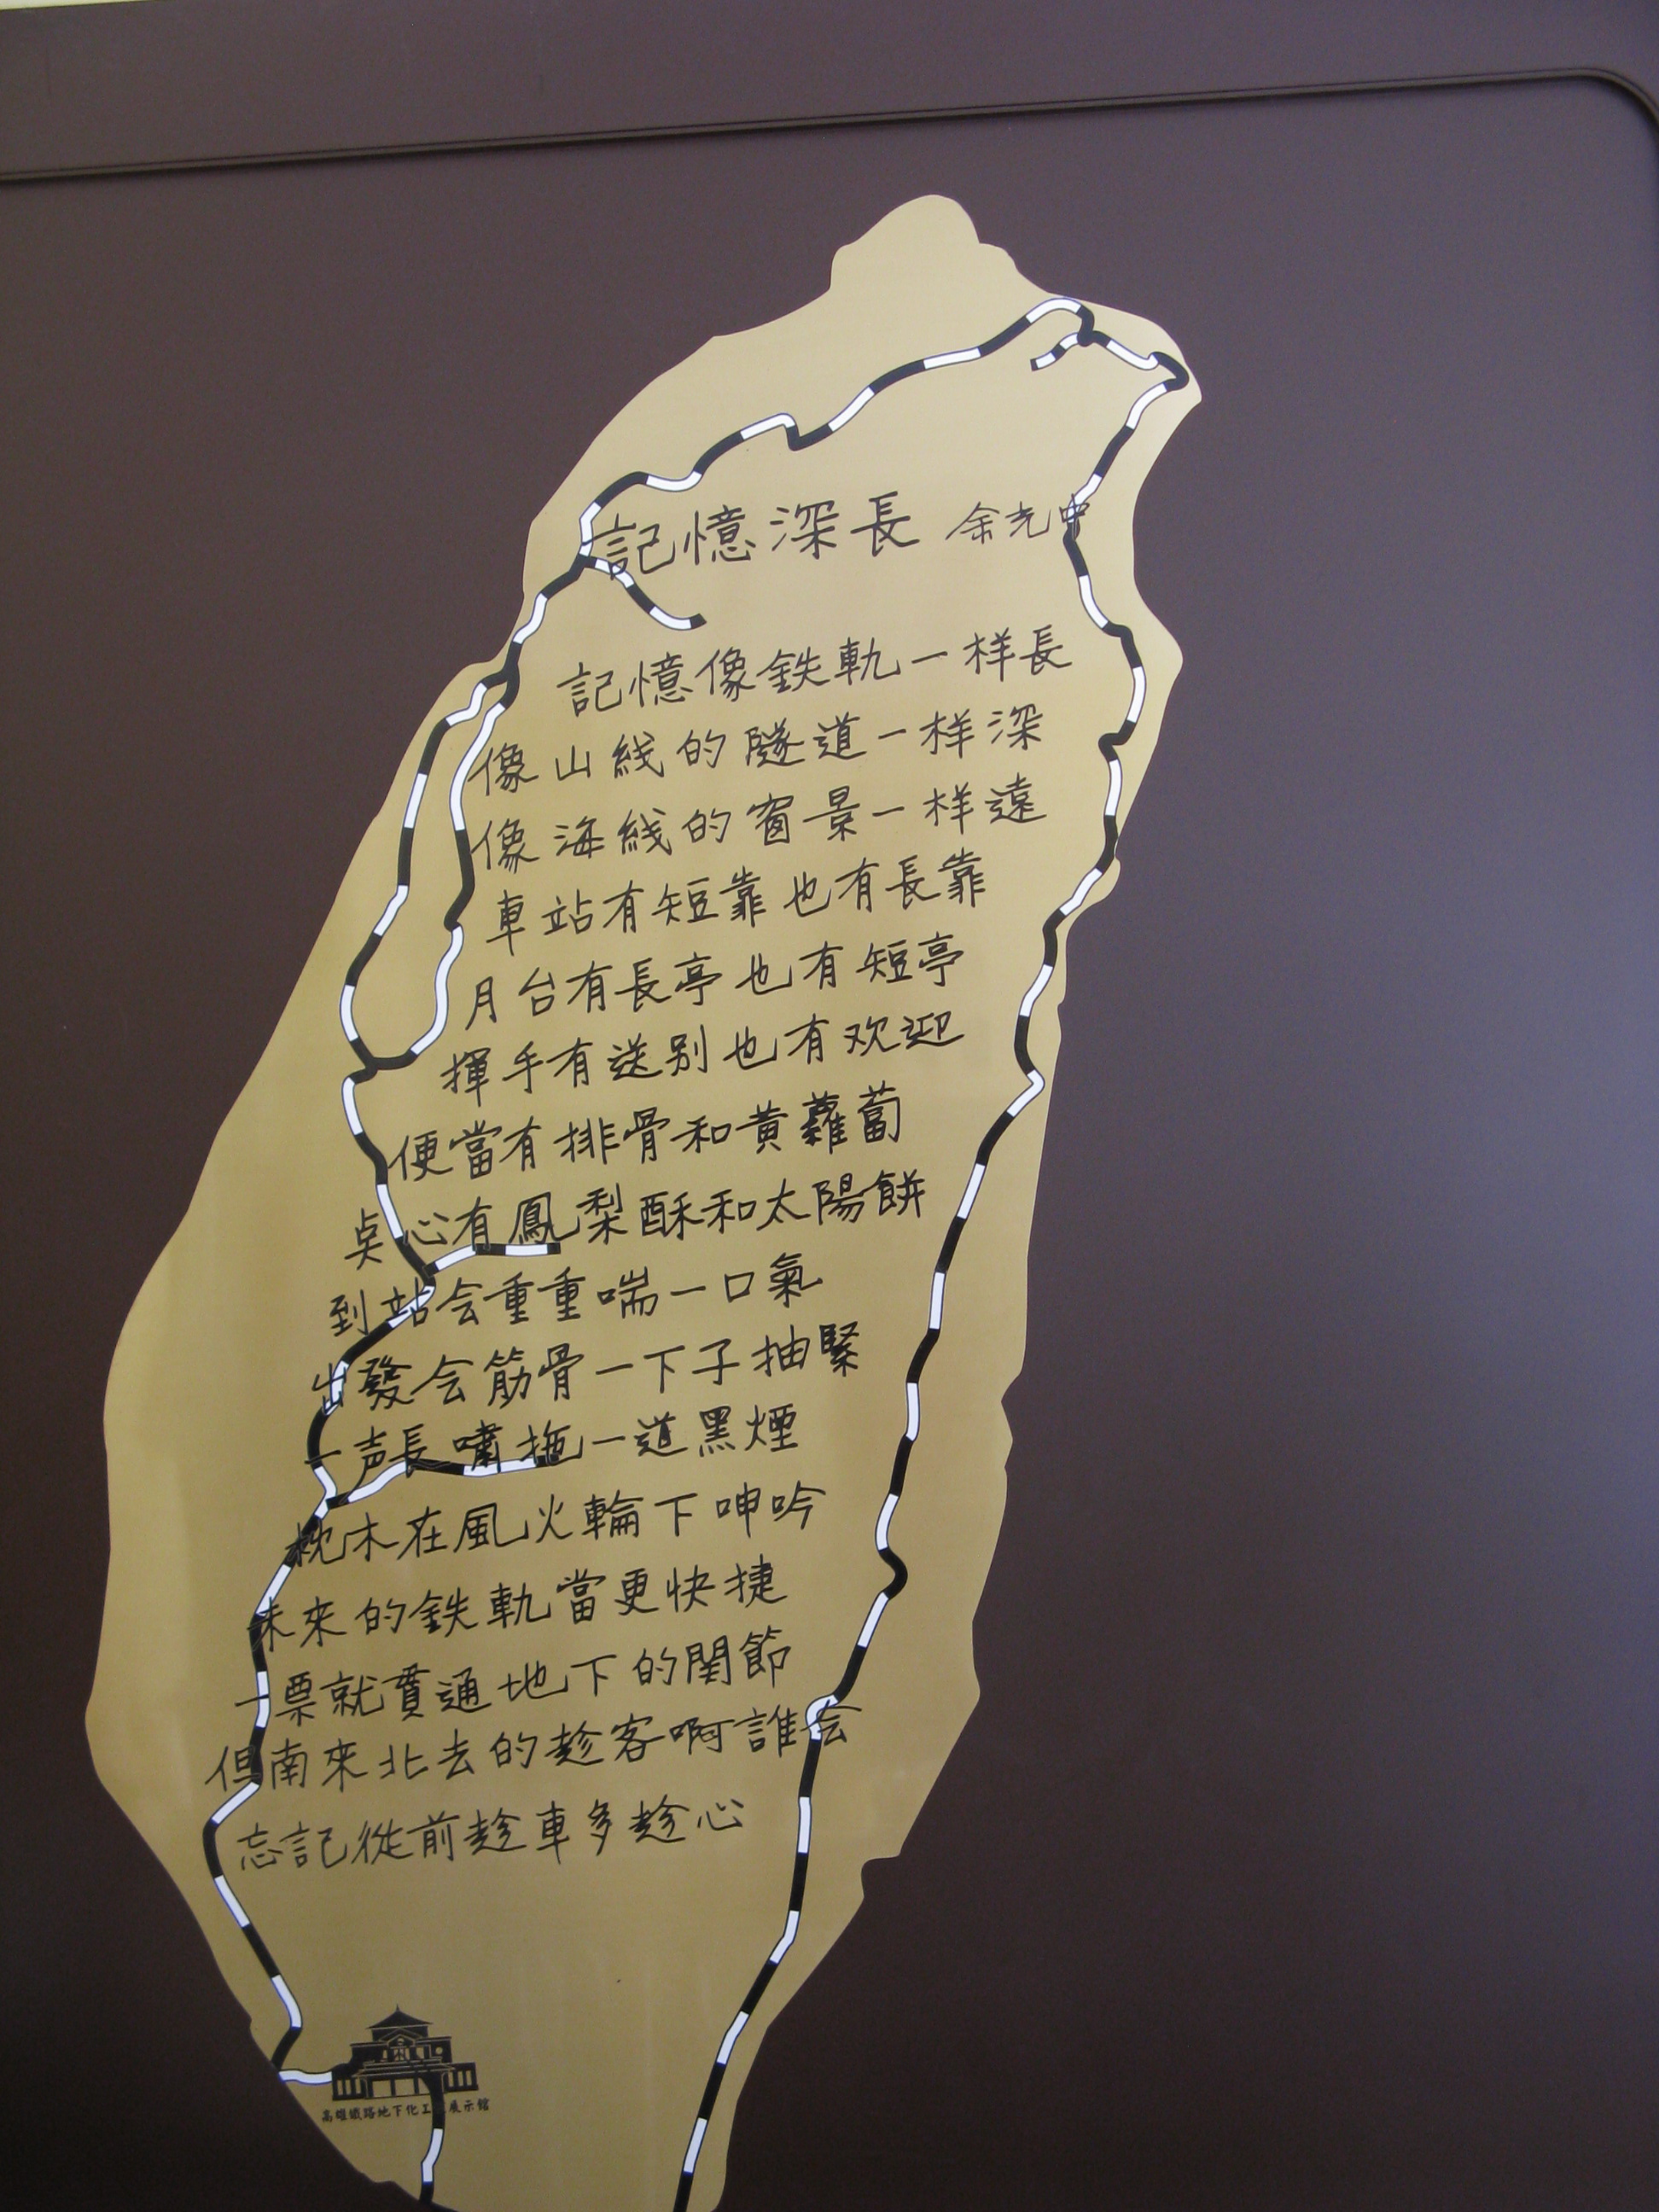 記憶深長 余光中
記憶像鉄軌一样長
像山綫的隧道一样深
像海綫的窗景一样遠
車站有短靠也有長靠
月台有長亭也有短亭
揮手有送别也有欢迎
便當有排骨和黄蘿蔔
奌心有鳳梨酥和太陽餅
到站会重重喘一口氣
出發会筋骨一下子抽緊
一声長嘯拖一道黑煙
枕木在風火輪下呻吟
未來的鉄軌當更快捷
一票就貫通地下的関節
但南來北去的趁客啊誰会
忘記從前趁車多趁心
高雄鐵路地下化工程展示館